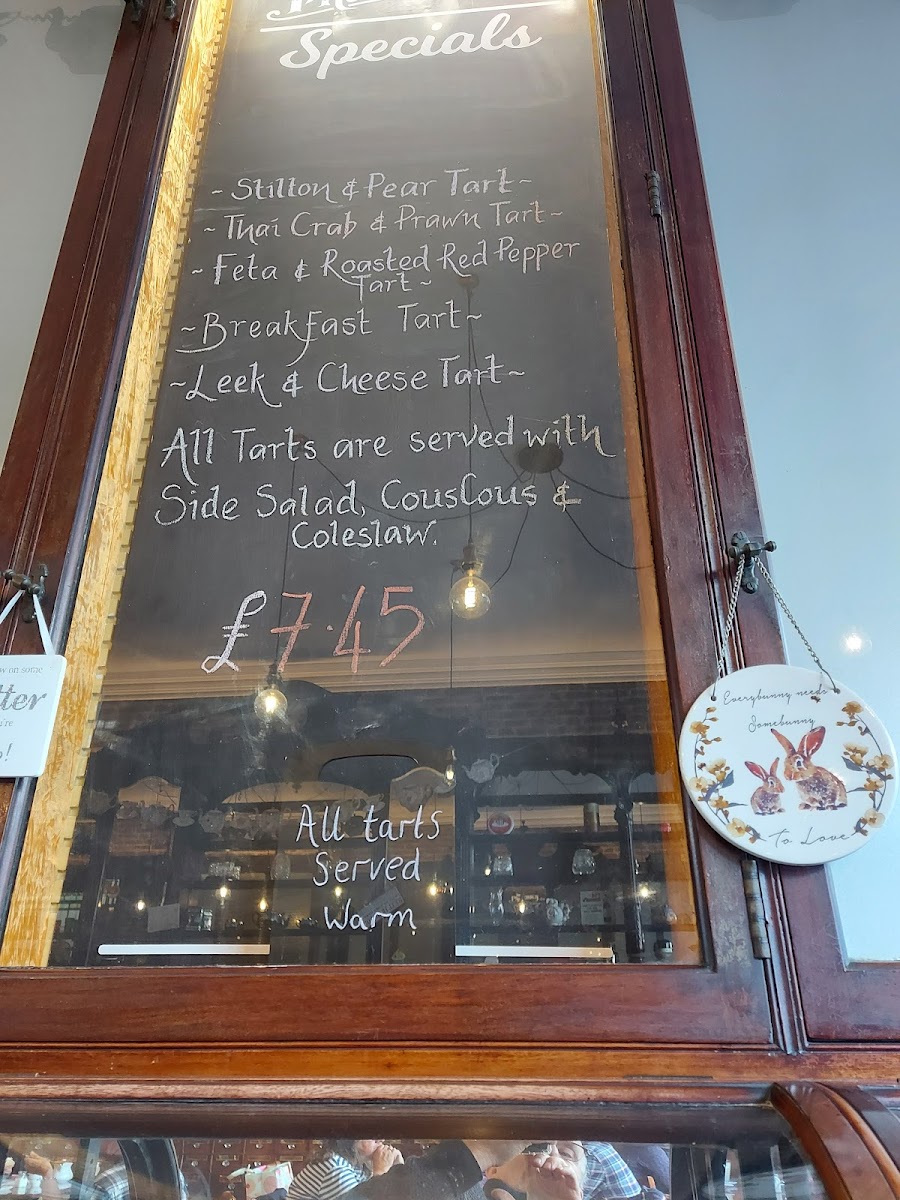 Specials
~ Stilton & Pear Tart ~
~ Thai Crab & Prawn Tart ~
~ Feta & Roasted Red Pepper
Tart ~
~ Breakfast Tart ~
~ Leek & Cheese Tart ~
All Tarts are served with
Side Salad, CousCous &
Coleslaw.
£7.45
All tarts
Served
Warm
on some
Everybunny needs
Somebunny
To Love